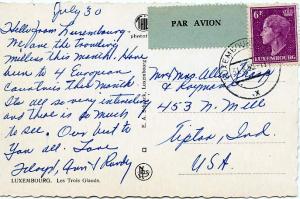 July 30
PAR AVION
6F
Hello from Luxembourg.
We are the traveling
this month. Have
been to 4 European
countries this month
Its all so very interesting
and there is so much
to see. Our best to
you all. Love
Floyd, Ann & Randy
LUXEMBOURG. Les Trois Glands.
Mr & Mrs Allen
& Raymon
453 N. Mill
Tipton, Ind.
USA.